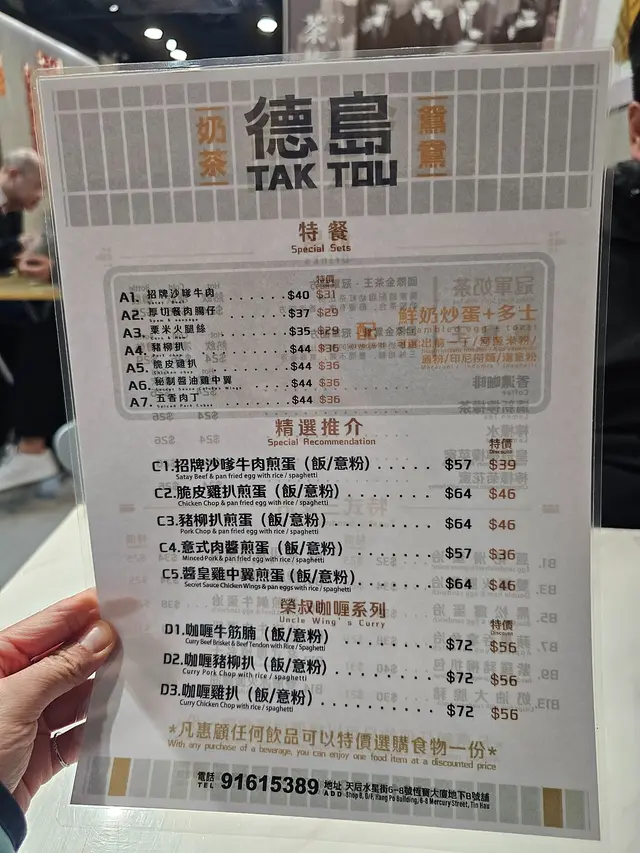 奶茶
德島
鴛鴦
TAK TOU
特餐
Special Sets
特價
Discount
A1. 招牌沙嗲牛肉 $40 $31
Satay Beef
A2. 厚切餐肉腸仔 $37 $29
A3. 粟米火腿絲 $35 $29
A4. 豬柳扒 $44 $36
Pork chop
A5. 脆皮雞扒 $44 $36
Chicken chop
A6. 秘制醬油雞中翼 $44 $36
A7. 五香肉丁 $44 $36
鮮奶炒蛋+多士
Scrambled egg + toast
精選推介
Special Recommendation
特價
Discount
C1. 招牌沙嗲牛肉煎蛋（飯/意粉） $57 $39
Satay Beef & pan fried egg with rice / spaghetti
C2. 脆皮雞扒煎蛋（飯/意粉） $64 $46
Chicken Chop & pan fried egg with rice / spaghetti
C3. 豬柳扒煎蛋（飯/意粉） $64 $46
Pork Chop & pan fried egg with rice / spaghetti
C4. 意式肉醬煎蛋（飯/意粉） $57 $36
Minced Pork & pan fried egg with rice / spaghetti
C5. 醬皇雞中翼煎蛋（飯/意粉） $64 $46
Secret Sauce Chicken Wings & pan eggs with rice / spaghetti
榮叔咖喱系列
Uncle Wing's Curry
特價
Discount
D1. 咖喱牛筋腩（飯/意粉） $72 $56
Curry Beef Brisket & Beef Tendon with Rice / Spaghetti
D2. 咖喱豬柳扒（飯/意粉） $72 $56
Curry Pork Chop with rice / spaghetti
D3. 咖喱雞扒（飯/意粉） $72 $56
Curry Chicken Chop with rice / spaghetti
*凡惠顧任何飲品可以特價選購食物一份*
With any purchase of a beverage, you can enjoy one food item at a discounted price
電話 TEL 91615389 地址 ADD 天后水星街6-8號恆寶大廈地下B號舖
Shop B, G/F, Hang Po Building, 6-8 Mercury Street, Tin Hau